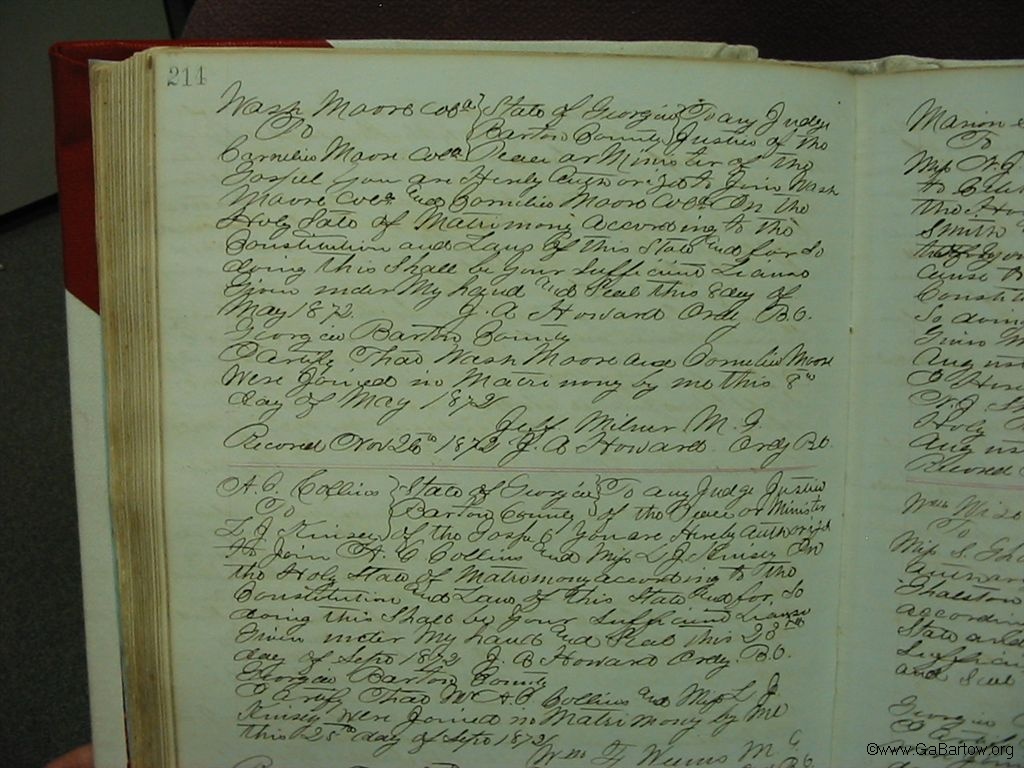 214
Wash Moore cold } State of Georgia } To any Judge
To } Bartow County } Justice of the
Cornelia Moore cold Peace or Minister of the
Gospell you are Herby Authorized to Join Wash
Moore cold and Cornelia Moore cold In the
Holy State of Matrimony according to the
Constitution and Laws of this State and for So
doing this Shall be your Sufficient License
Given under My hand and Seal this 8 day of
May 1872 J. A Howard Ordy B.C.
Georgia Bartow County
I Certify That Wash Moore and Cornelia Moore
Were Joined in Matrimony by me this 8th
day of May 1872
Jeff Milner M. G.
Recored Nov 26th 1872 J. A Howard Ordy B.C.
A. C. Collins } State of Georgia } To any Judge Justice
To } Bartow County } of the Peace or Minister
L. J. Kinsey of the Gospel You are Hereby Authorized
to Join A. C Collins and Miss L J. Kinsey In
the Holy State of Matrimony according to the
Constitution and Laws of this State and for So
doing this Shall be Your Sufficient License
Given under My hand and Seal this
day of Sept 1872 J. A Howard Ordy. B.C.
Georgia Bartow County
I Certify That Mr A. C. Collins and Miss L J.
Kinsey Were Joined in Matrimony by Me
this 25th day of Sept 1872
Wm F Weems M. G
Marion
To
Miss
to
the Ho
Smith
Constit
So doin
Given
August
Holy
August
Recored
Wm
To
Miss S.
accordin
State and
Sufficie
and Seal
Georgia
©www.GaBartow.org